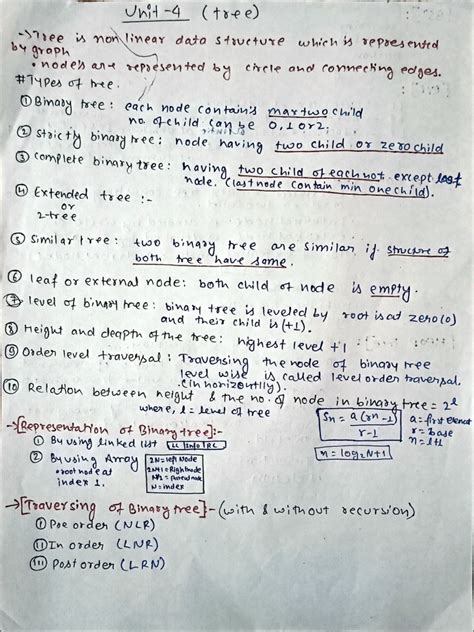 Unit-4 (tree)
->Tree is non linear data structure which is represented
by graph
• nodes are represented by circle and connecting edges.
#Types of tree.
① Binary tree: each node contain's max two child
no. of child can be 0,1 or 2.
② Strictly binary tree: node having two child or zero child
③ Complete binary tree: having two child of each not except last
node. (last node contain min one child).
④ Extended tree :-
or
2-tree
⑤ Similar tree: two binary tree are similar if structure of
both tree have same.
⑥ leaf or external node: both child of node is empty.
⑦ level of binary tree: binary tree is leveled by root is at zero(0)
and their child is (+1).
⑧ Height and deapth of the tree: highest level +1
⑨ Order level traversal: Traversing the node of binary tree
level wise is called level order traversal.
(in horizontily).
⑩ Relation between height & the no. of node in binary tree = 2^l
where, l = level of tree
Sn = a(r^n-1)/r-1
a = first element
r = base
n = l+1
n = log2N+1
->[Representation of Binary tree]:-
① By using linked list LL INFO RL
② By using Array
• root node at
index 1.
2N = left Node
2N+1 = Right Node
N/2 = parent node
N = index
->[Traversing of Binary tree]:- (with & without recursion)
(i) Pre order (NLR)
(ii) In order (LNR)
(iii) Post order (LRN)